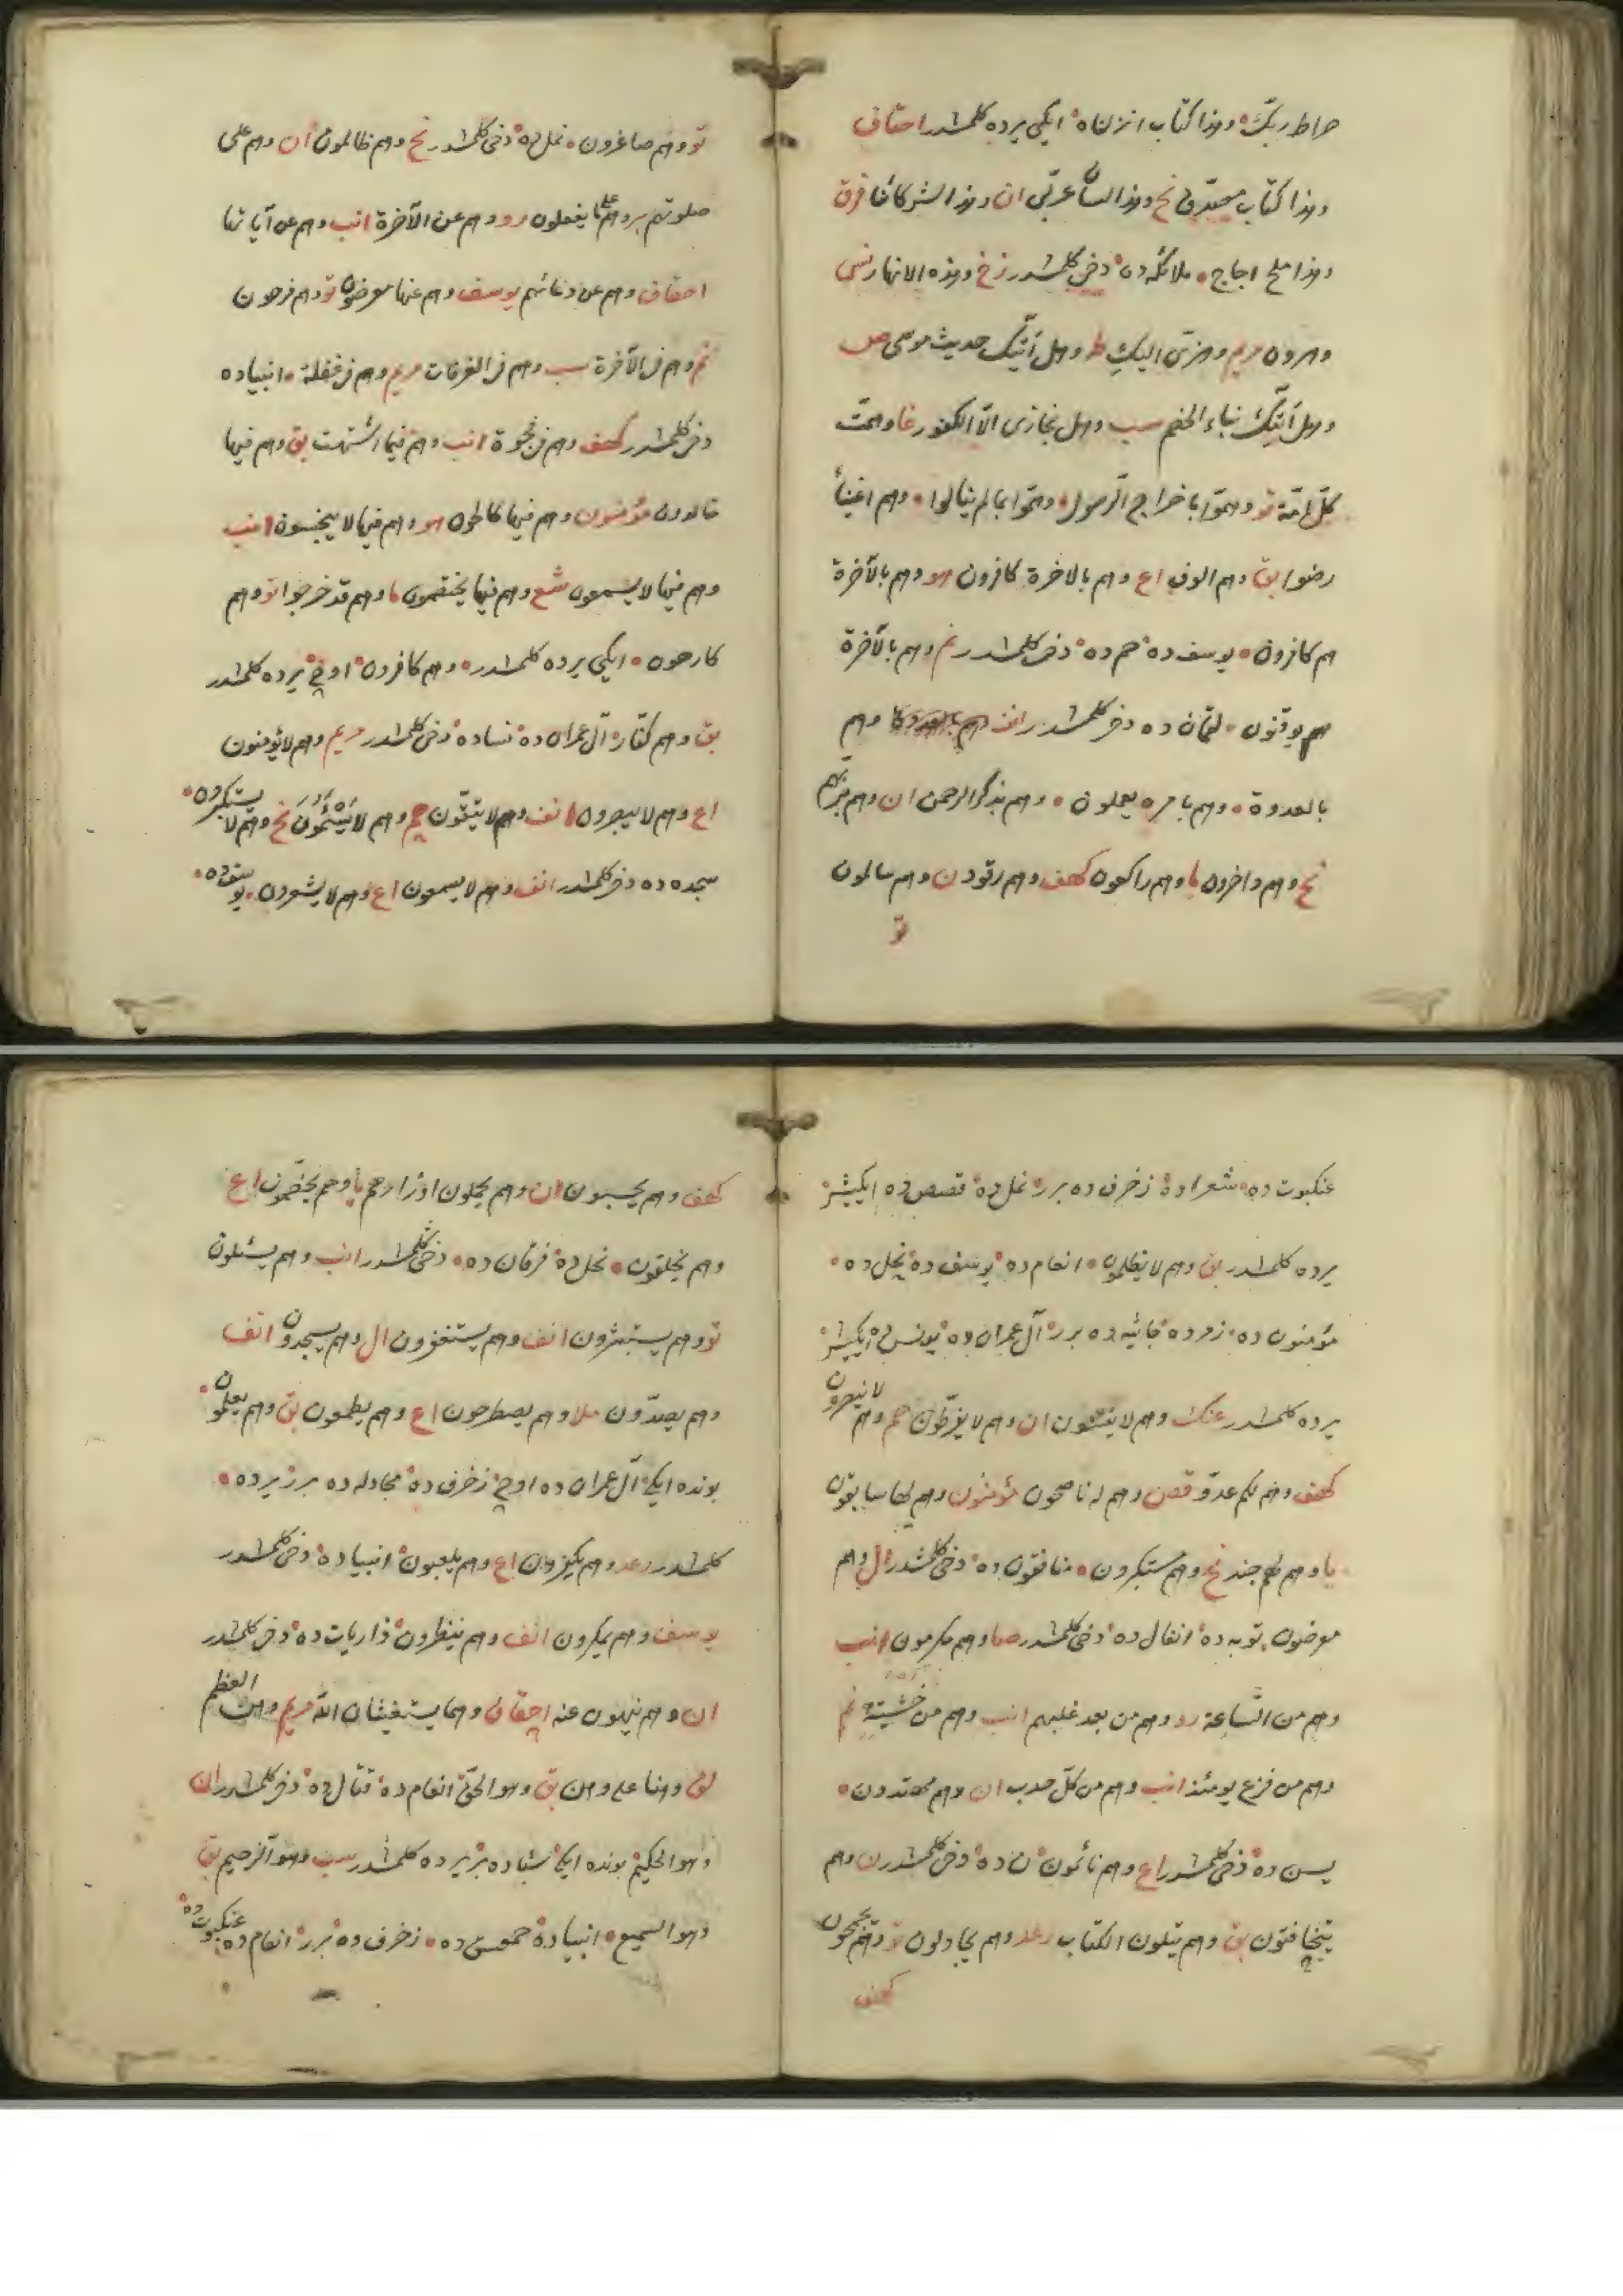 صراط ربك وهذا كتاب انزلناه ایکی یرده کلمشدر احقاف
وهذا كتاب مصدق نح وهذا لسان عربی ان وهذا لشركائنا فرق
وهذا ملح اجاج ملائکه ده دخی کلمشدر زخ وهذه الانهار
وهزی الیك طه وهل اتیك حدیث موسی ص
وهل اتیك نباء الخصم سب وهل نجازی الا الكفور غا وهمت
كل امة تو وهموا باخراج الرسول وهموا بمالم ینالوا وهم اغنیاء
رضوا بق وهم الوف اع وهم بالاخرة كافرون هو وهم بالآخرة
هم كافرون یوسف ده حم ده دخی کلمشدر نم وهم بالآخرة
هم یوقنون لقمان ده دخی کلمشدر انف وهم
بالعدوة وهم بامره یعملون وهم بذكر الرحمن ان وهم بربهم
نح وهم داخرون ما وهم راكعون كهف وهم رقود ن وهم سالمون
تو
تو وهم صاغرون نمل ده دخی کلمشدر نح وهم ظالمون ان وهم علی
صلوتهم بر وهم علی ما یفعلون رو وهم عن الآخرة انب وهم عن آیاتها
احقاف وهم عن دعائهم یوسف وهم عنها معرضون تو وهم فرحون
نم وهم فی الآخرة سب وهم فی الغرفات مریم وهم فی غفلة انبیاده
دخی کلمشدر كهف وهم فی فجوة انب وهم فیما اشتهت بق وهم فیها
خالدون مؤمنون وهم فیها كالحون هو وهم فیها لا یبخسون انب
وهم فیها لا یسمعون شع وهم فیها یختصمون ما وهم قد خرجوا تو وهم
كارهون ایکی یرده کلمشدر وهم كافرون اوچ یرده کلمشدر
بق وهم كفار آل عمران ده نساده دخی کلمشدر مریم وهم لا یؤمنون
اع وهم لا یبصرون انف وهم لا یتقون حم وهم لا یسئمون نح وهم لا یستكبرون
سجده ده دخی کلمشدر انف وهم لا یسمعون اع وهم لا یشعرون یوسف ده
عنكبوت ده شعراده زخرف ده برر نمل ده قصص ده ایکیشر
یرده کلمشدر بق وهم لا یظلمون انعام ده یوسف ده نحل ده
مؤمنون ده زمرده جاثیه ده برر آل عمران ده یونس ده ایکیشر
یرده کلمشدر عنك وهم لا یفتنون ان وهم لا یفرطون حم وهم لا ینصرون
كهف وهم لكم عدو قصن وهم له ناصحون مؤمنون وهم لها سابقون
یا وهم لهم جند نح وهم مستكبرون منافقون ده دخی کلمشدر ال وهم
معرضون توبه ده انفال ده دخی کلمشدر صا وهم مكرمون انب
وهم من الساعة رو وهم من بعد غلبهم انب وهم من خشیته نم
وهم من فزع یومئذ انب وهم من كل حدب ان وهم مهتدون
یسن ده دخی کلمشدر اع وهم نائمون ن ده دخی کلمشدر ن وهم
یتخافتون بق وهم یتلون الكتاب رعد وهم یجادلون تو وهم یجمحون
كهف
كهف وهم یحسبون ان وهم یحملون اوزارهم یا وهم یخصمون اع
وهم یخلقون نحل ده فرقان ده دخی کلمشدر انب وهم یسئلون
تو وهم یستبشرون انف وهم یستغفرون ال وهم یسجدون انف
وهم یصدون ملا وهم یصطرخون اع وهم یطمعون بق وهم یعلمون
بونده ایکی آل عمران ده اوچ زخرف ده مجادله ده برر یرده
کلمشدر رعد وهم یكفرون اع وهم یلعبون انبیاده دخی کلمشدر
یوسف وهم یمكرون انف وهم ینظرون ذاریات ده دخی کلمشدر
ان وهم ینهون عنه احقاف وهما یستغیثان الله مریم وهن العظم
لق وهنا علی وهن بق وهو الحق انعام ده قتال ده دخی کلمشدر ان
وهو الحكیم بونده ایکی سباده بر یرده کلمشدر سب وهو الرحیم بق
وهو السمیع انبیاده حمعسق ده زخرف ده برر انعام ده عنكبوت ده